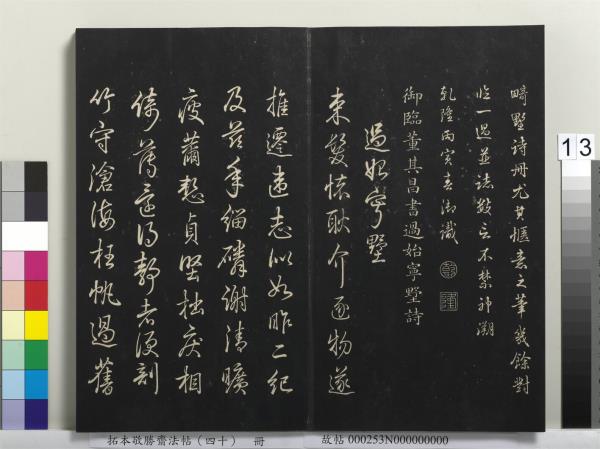 畸墅诗册尤其惬意之筆幾餘對
臨一過並誌數言不禁神溯
乾隆丙寅春御識
乾 隆
御臨董其昌書過始寧墅詩
過始寧墅
束髮懷耿介逐物遂
推遷違志似如昨二紀
及茲年緇磷謝清曠
疲薾慙貞堅拙疾相
倚薄還得靜者便剖
竹守滄海枉帆過舊
拓本敬勝齋法帖(四十) 冊
故帖 000253N000000000
13